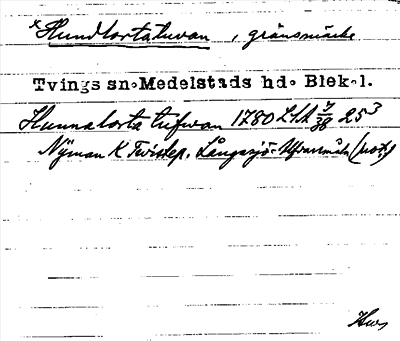 *Hundlortatuvan, gränsmärke
Tvings sn. Medelstads hd. Blek.l.
Hunnalorta tufwan 1780 LSA 7/38 25³
Nyman K Tvistep. Långasjö-Ufvasmåla (not.)